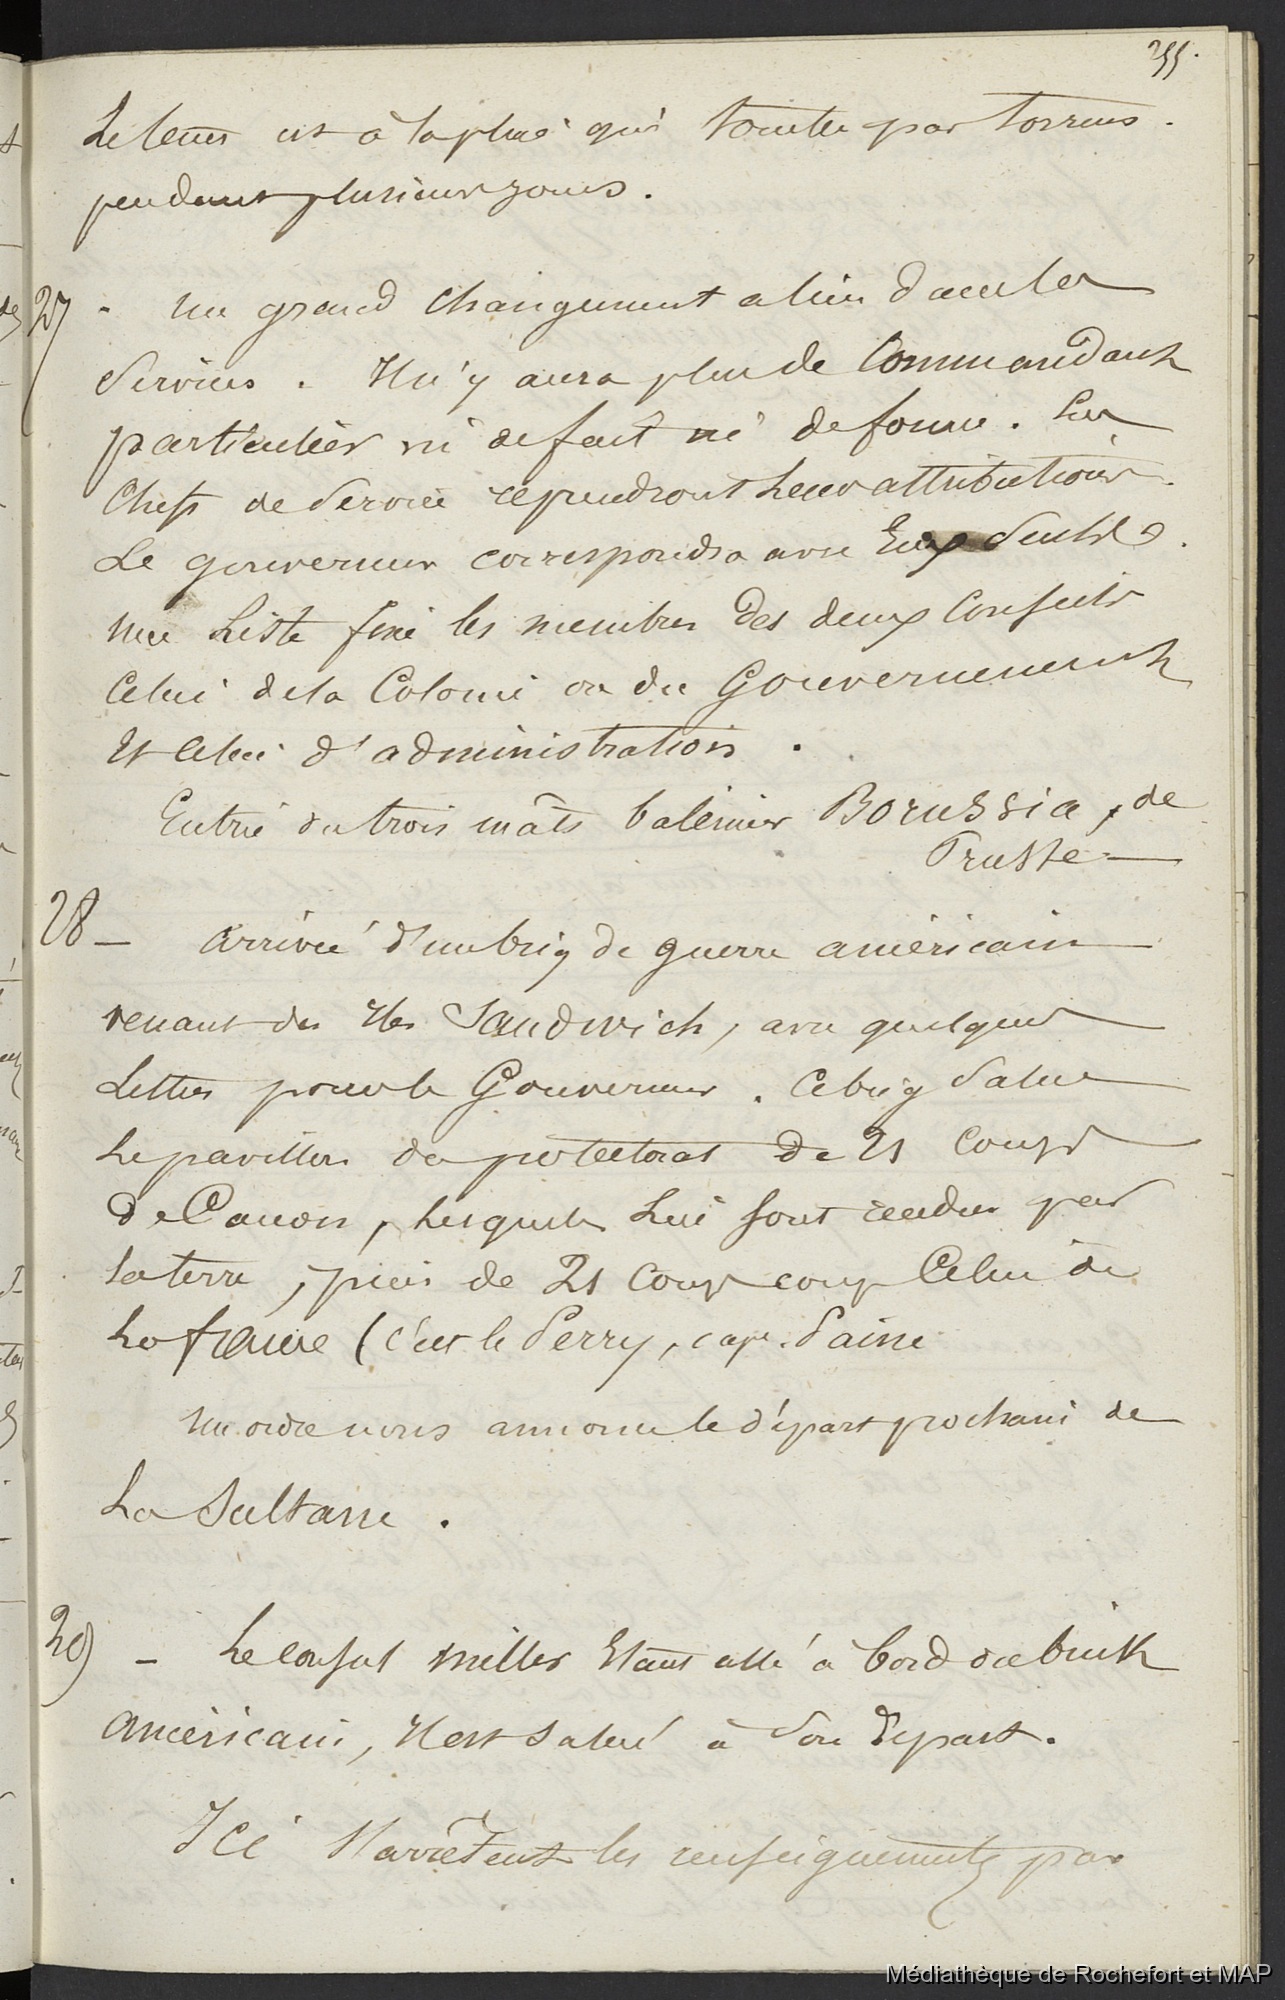 255.
Le tems est à la pluie qui tombe par torrens.
pendant plusieurs jours.
27 - un grand changement a lieu dans les
Services. Il n'y aura plus de Commandant
particulier ni de fait ni de forme. Les
Chefs de Service reprendront leurs attributions.
Le gouverneur correspondra avec Eux Seuls.
une Liste fixe les membres des deux Conseils
Celui de la Colonie ou du Gouvernement
Et celui d'administration.
Entrée du trois mâts baleinier Borussia, de
Prusse —
28 — arrivée d'un brig de guerre américain
venant des Iles Sandwich, avec quelques
Lettres pour le Gouverneur. Ce brig Salue
Le pavillon du protectorat de 21 Coups
de Canon, lesquels Lui sont rendus par
la terre, puis de 21 Coups coup Celui de
La france (c'est le Perry, cape. Paine
un ordre nous annonce le départ prochain de
La Sultane.
29 - Le consul Miller Etant allé à bord du brick
américain, Il est salué à Son Départ.
Ici S'arrêtent les renseignements par
Médiathèque de Rochefort et MAP